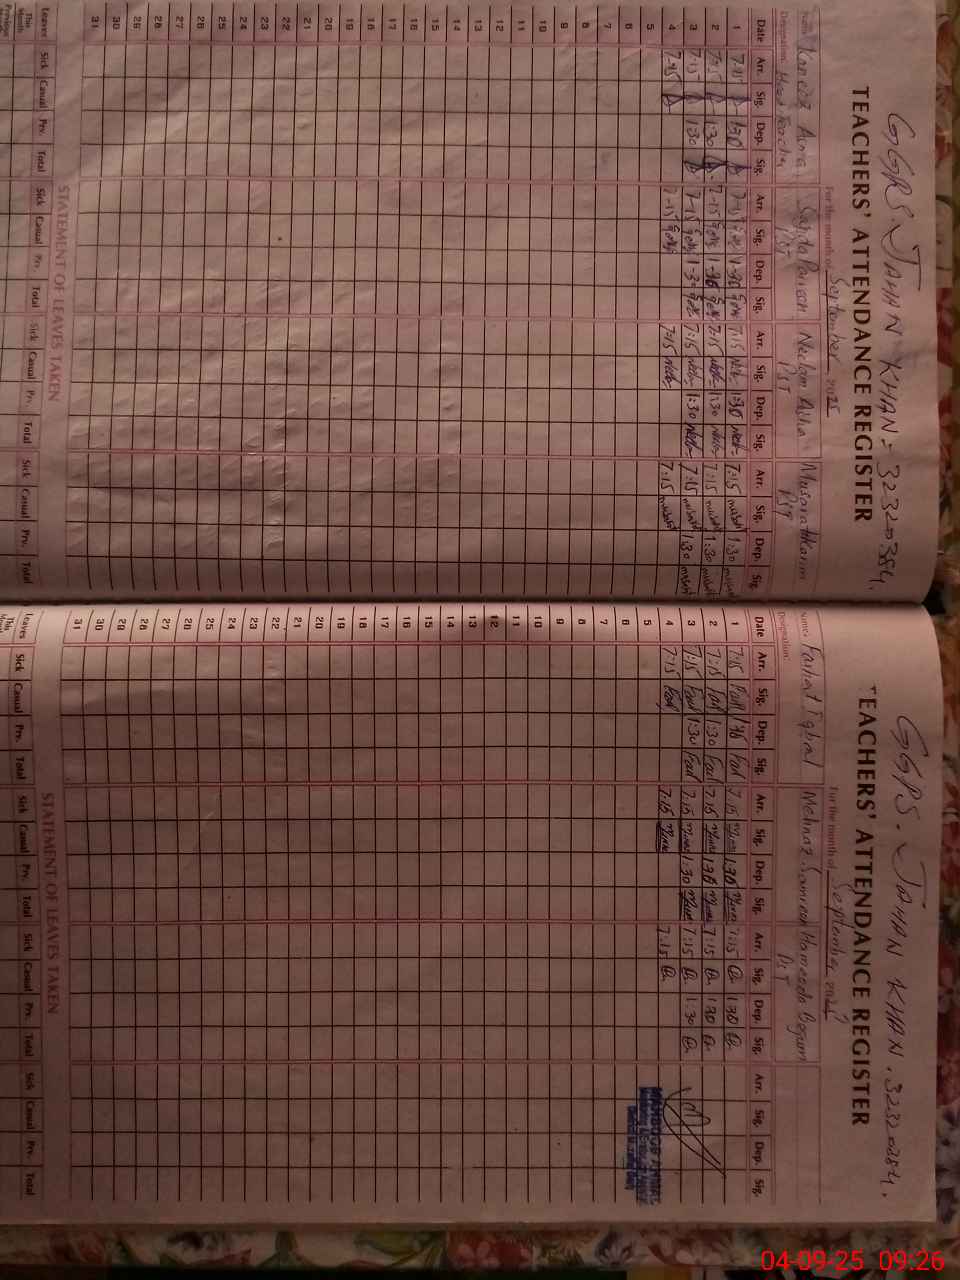 GGPS. JAHAN KHAN - 32320384.
TEACHERS' ATTENDANCE REGISTER
For the month of September 2025
Name
Designation: Head Teacher PST PST PST
Date Arr. Sig. Dep. Sig. Arr. Sig. Dep. Sig. Arr. Sig. Dep. Sig. Arr. Sig. Dep. Sig.
1 7-15 1:30 7-15 1-30 7:15 1:30 7:15 1:30
2 7-15 1:30 7-15 1-30 7:15 1:30 7:15 1:30
3 7-15 1:30 7-15 1-30 7:15 1:30 7:15 1:30
4 7-15 7-15 7:15 7:15
5
6
7
8
9
10
11
12
13
14
15
16
17
18
19
20
21
22
23
24
25
26
27
28
29
30
31
STATEMENT OF LEAVES TAKEN
Leaves Sick Casual Prv. Total Sick Casual Prv. Total Sick Casual Prv. Total Sick Casual Prv. Total
This Month
Previous
GGPS. JAHAN KHAN. 32320384.
TEACHERS' ATTENDANCE REGISTER
For the month of September 2025
Name: Farhat Iqbal Mehnaz Samreen Hameeda Begum
Designation: PST
Date Arr. Sig. Dep. Sig. Arr. Sig. Dep. Sig. Arr. Sig. Dep. Sig. Arr. Sig. Dep. Sig.
1 7:15 1:30 7:15 1:30 7:15 1:30
2 7:15 1:30 7:15 1:30 7:15 1:30
3 7:15 1:30 7:15 1:30 7:15 1:30
4 7:15 7:15 7:15
5
6
7
8
9
10
11
12
13
14
15
16
17
18
19
20
21
22
23
24
25
26
27
28
29
30
31
STATEMENT OF LEAVES TAKEN
Leaves Sick Casual Prv. Total Sick Casual Prv. Total Sick Casual Prv. Total Sick Casual Prv. Total
This Month
04-09-25 09:26